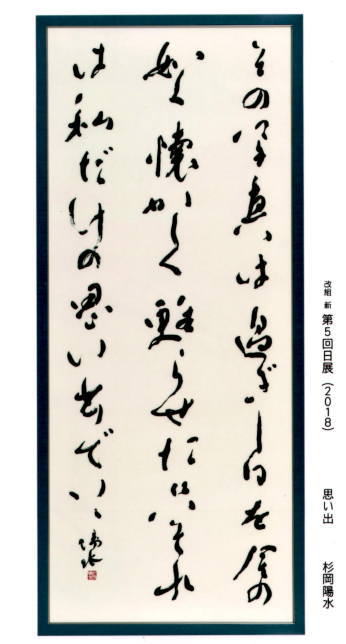 その写真は過ぎし日を今の
如く懐かしく甦らせたがそれ
は私だけの思い出でいい 陽水
改組 新 第5回日展（2018） 思い出 杉岡陽水